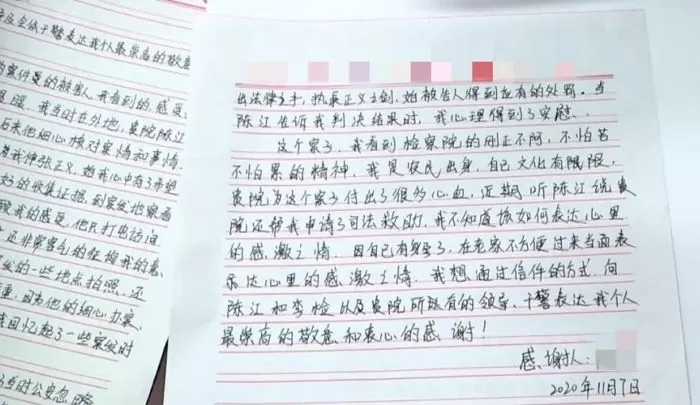 字及全体干警表达我个人最崇高的敬意
案件的被告人,我看到的感受
我当时在外地,贵院陈江
细心核对案情和事情
伸张正义,给我心中有了希望
好的收集证据,到案发地察看
我的感受,他只打电话询
还非常客气的征询我的意
的一些地点拍照,还
因为他的细心办案,
回忆起了一些案发时
当时公安忽略
出法律之手,执最正义之剑,如被告人得到应有的处罚。当
陈江告诉我判决结果时,我心理得到了安慰..
这个案子,我看到检察院的刚正不阿,不怕苦
不怕累的精神,我是农民出身,自己文化有限限,
贵院为这个案子付出了很多心血,近期听陈江说贵
院还帮我申请了司法救助,我不知道该如何表达心里
的感激之情,因自己有身孕了,在老家不方便过来当面表
示达心里的感激之情,我想通过信件的方式,向
陈江和李检以及贵院所以有的领导、干警表达我个人
最崇高的敬意和衷心的感谢!
感谢人:
2020年11月7日